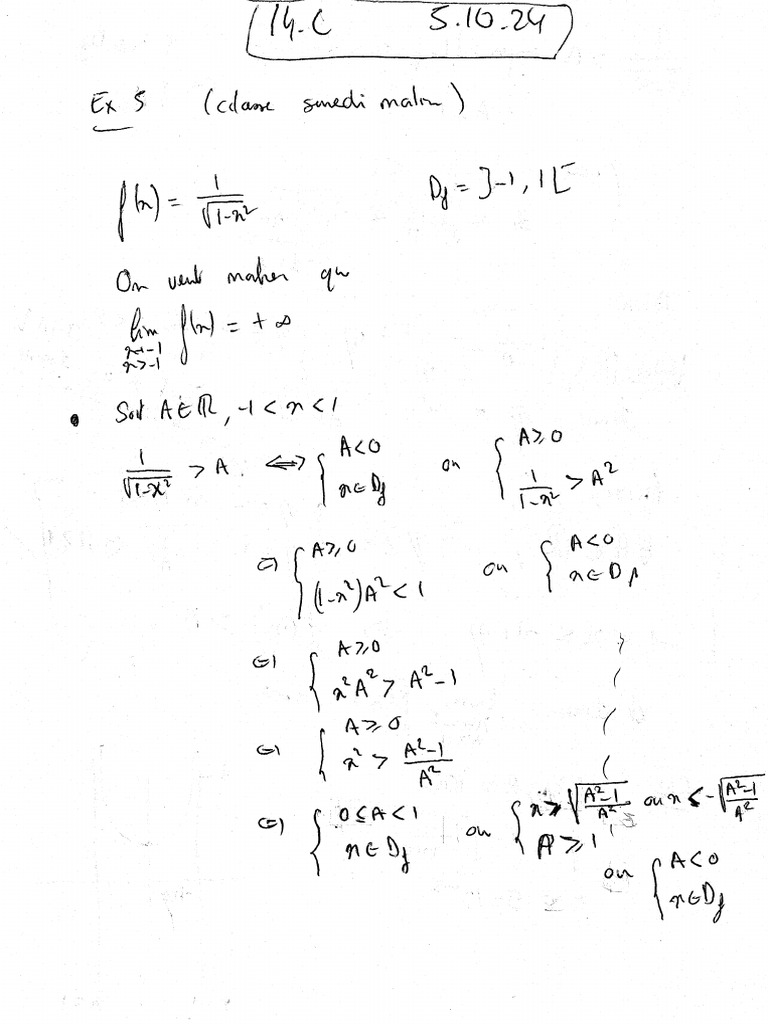 14.C 5.10.24
Ex 5 (classe samedi matin)
f(x) = 1/√(1-x²) D_f = ]-1, 1[
On veut montrer que
lim f(x) = +∞
x→-1
x>-1
• Soit A∈ℝ, -1 < x < 1
1/√(1-x²) > A ⟺ { A<0 ; x∈D_f ou { A≥0 ; 1/(1-x²) > A²
⟺ { A≥0 ; (1-x²)A² < 1 ou { A<0 ; x∈D_f
⟺ { A≥0 ; x²A² > A²-1
⟺ { A≥0 ; x² > (A²-1)/A²
⟺ { 0≤A<1 ; x∈D_f ou { x > √((A²-1)/A²) ou x < -√((A²-1)/A²) ; A≥1
ou { A<0 ; x∈D_f